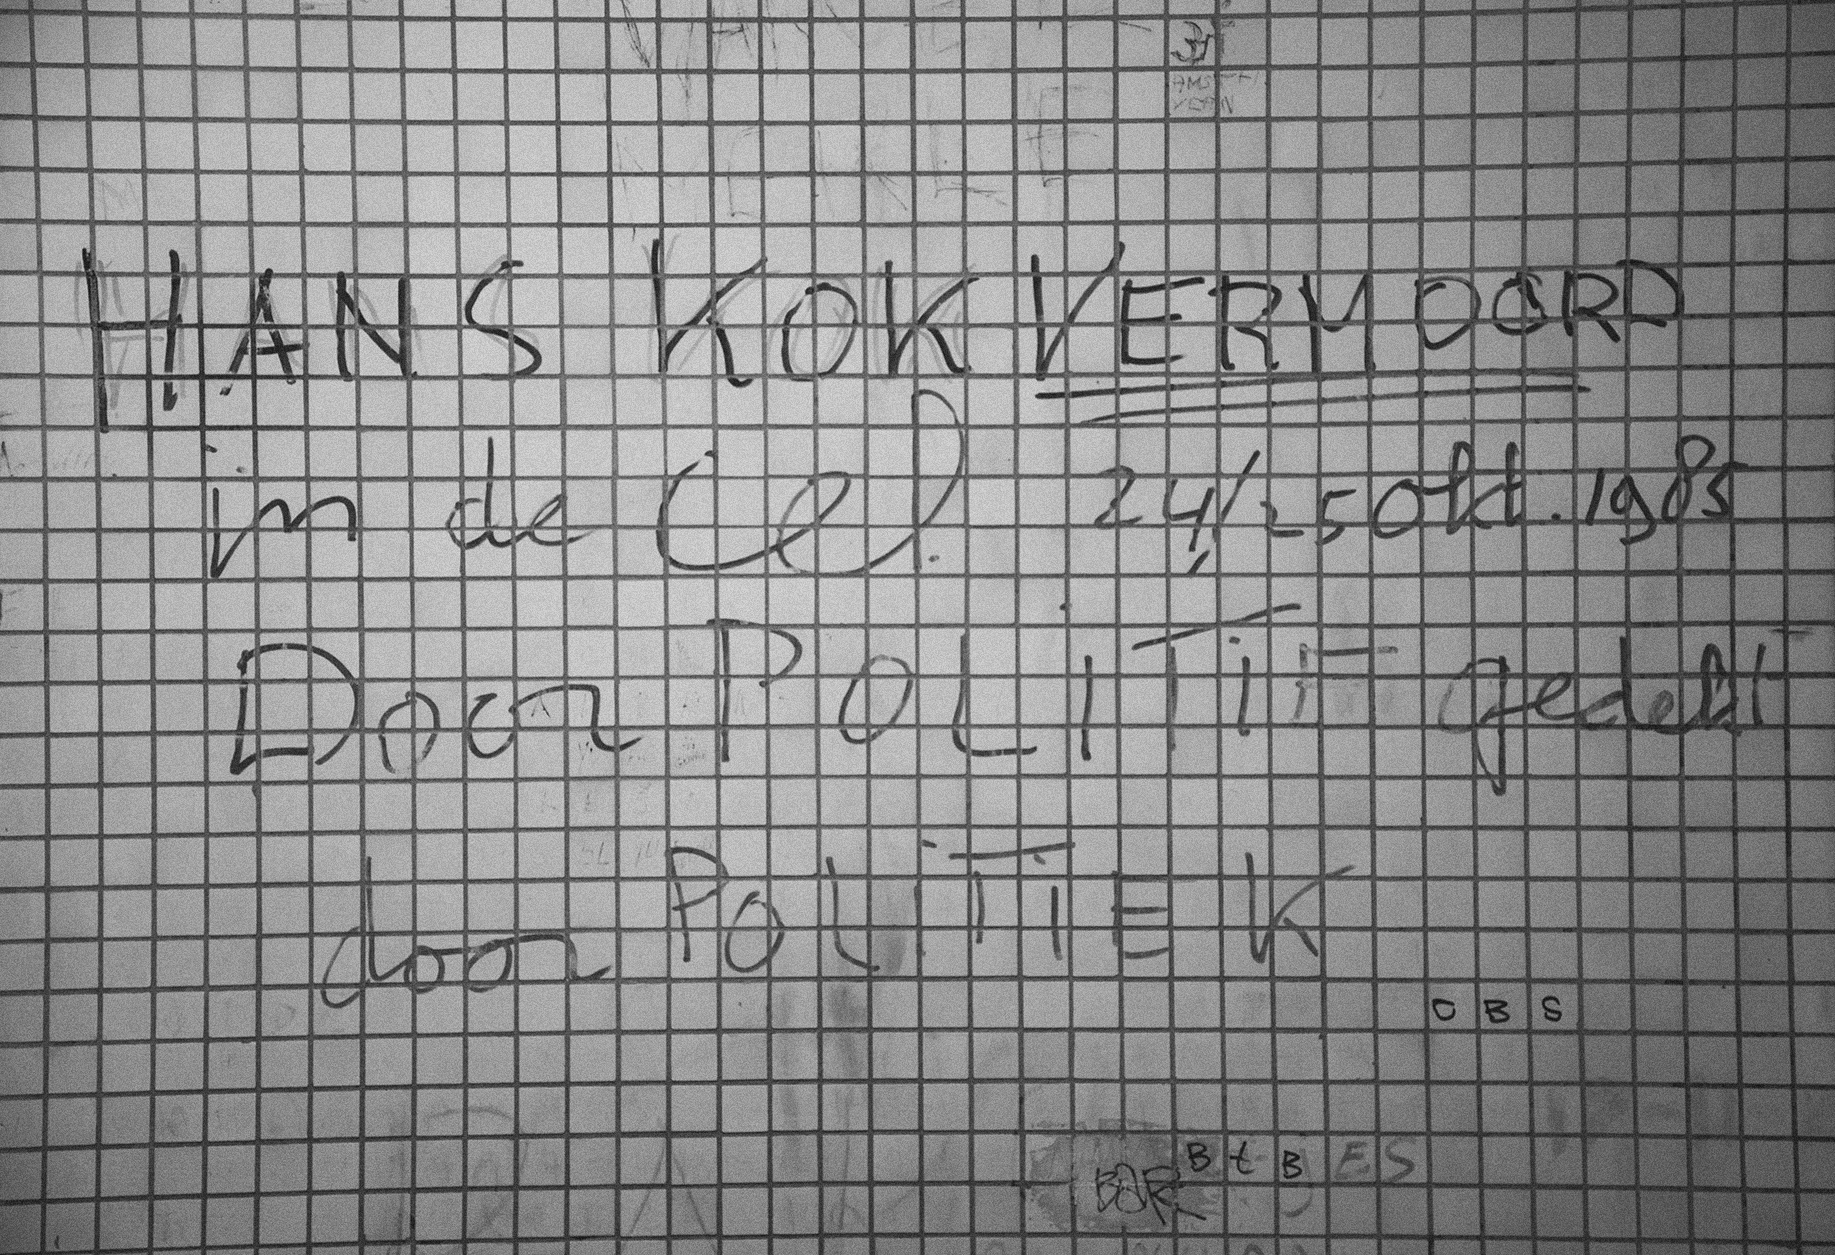 HANS KOK VERMOORD
in de Cel. 24/25 Okt. 1985
Door POLITIE gedekt
door POLITIEK
OBS
BtB ES